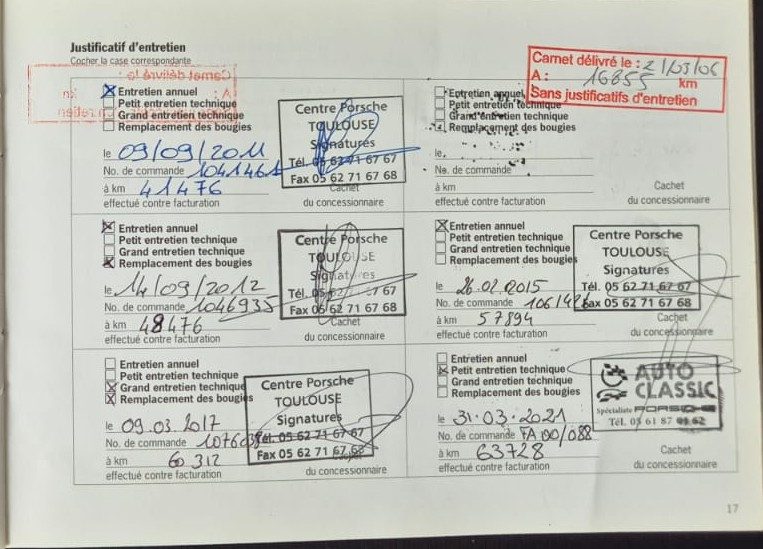 Justificatif d'entretien
Cocher la case correspondante
Carnet délivré le : 21/03/06
A : 16855 km
Sans justificatifs d'entretien
Carnet délivré le :
A :
km
Entretien annuel
Petit entretien technique
Grand entretien technique
Remplacement des bougies
le 09/09/2011
No. de commande 1041461
à km 41476
effectué contre facturation
Centre Porsche
TOULOUSE
Signatures
Tél. 05 62 71 67 67
Fax 05 62 71 67 68
Cachet
du concessionnaire
Entretien annuel
Petit entretien technique
Grand entretien technique
Remplacement des bougies
le
No. de commande
à km
effectué contre facturation
Cachet
du concessionnaire
Entretien annuel
Petit entretien technique
Grand entretien technique
Remplacement des bougies
le 14/09/2012
No. de commande 1046935
à km 48476
effectué contre facturation
Centre Porsche
TOULOUSE
Signatures
Tél. 05 62 71 67 67
Fax 05 62 71 67 68
Cachet
du concessionnaire
Entretien annuel
Petit entretien technique
Grand entretien technique
Remplacement des bougies
le 26.02.2015
No. de commande
à km 57894
effectué contre facturation
Centre Porsche
TOULOUSE
Signatures
Tél. 05 62 71 67 67
Fax 05 62 71 67 68
Cachet
du concessionnaire
Entretien annuel
Petit entretien technique
Grand entretien technique
Remplacement des bougies
le 09.03.2017
No. de commande
à km 60312
effectué contre facturation
Centre Porsche
TOULOUSE
Signatures
Tél. 05 62 71 67 67
Fax 05 62 71 67 68
du concessionnaire
Entretien annuel
Petit entretien technique
Grand entretien technique
Remplacement des bougies
le 31.03.2021
No. de commande FA00/088
à km 63728
effectué contre facturation
AUTO
CLASSIC
Spécialiste PORSCHE
Tél. 05 61 87
Cachet
du concessionnaire
17